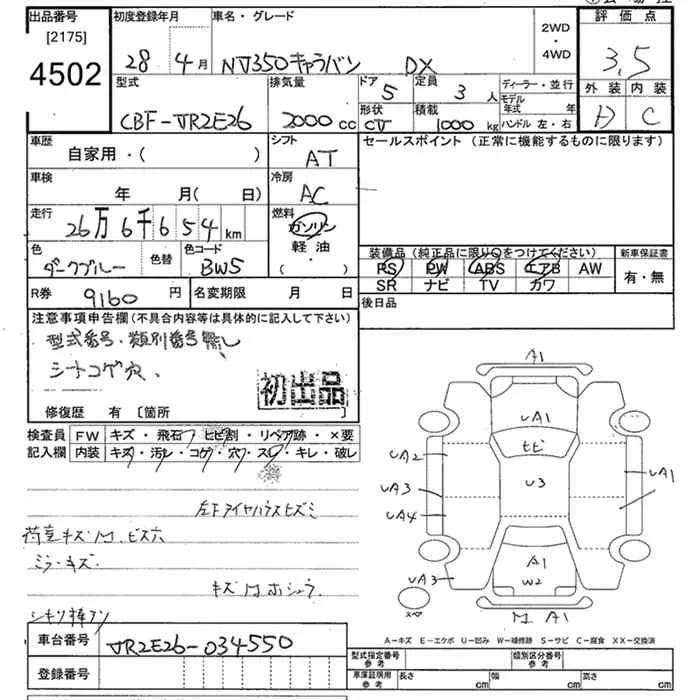 出品番号
[2175]
4502
初度登録年月
28年4月
車名・グレード
NV350キャラバン DX
2WD
・
4WD
評価点
3.5
型式
CBF-VR2E26
排気量
2000cc
ドア
5
定員
3人
形状
CV
積載
1000kg
ディーラー・並行
モデル年式 年
ハンドル 左・右
外装 内装
D C
車歴
自家用・( )
シフト
AT
車検
年 月(日)
冷房
AC
走行
26万6千654km
燃料
ガソリン
軽油
・( )
色
ダークブルー
色替
色コード
BW5
R券
9160円
名変期限 月 日
セールスポイント (正常に機能するものに限ります)
装備品 (純正品に限り○をつけてください)
PS PW ABS エアB AW
SR ナビ TV カワ
新車保証書
有・無
後日品
注意事項申告欄(不具合内容等は具体的に記入して下さい)
型式番号・類別番号無し
シートコゲ穴.
初出品
修復歴 有 [箇所
検査員記入欄
FW キズ・飛石・ヒビ割・リペア跡・×要
内装 キズ・汚レ・コゲ・穴・スレ・キレ・破レ
左F タイヤハウスヒズミ
荷室キズ M. ビス穴
ミラーキズ
キズ M ホシュウ
A1
UA1
ヒビ
UA2
U3
UA1
UA3
UA4
A1
W2
UA3
スペア
M A1
A-キズ E-エクボ U-凹み W-補修跡 S-サビ C-腐食 XX-交換済
車台番号
VR2E26-034550
登録番号
型式指定番号
参考
類別区分番号
参考
車庫証明用
参考
長さ cm
幅 cm
高さ cm